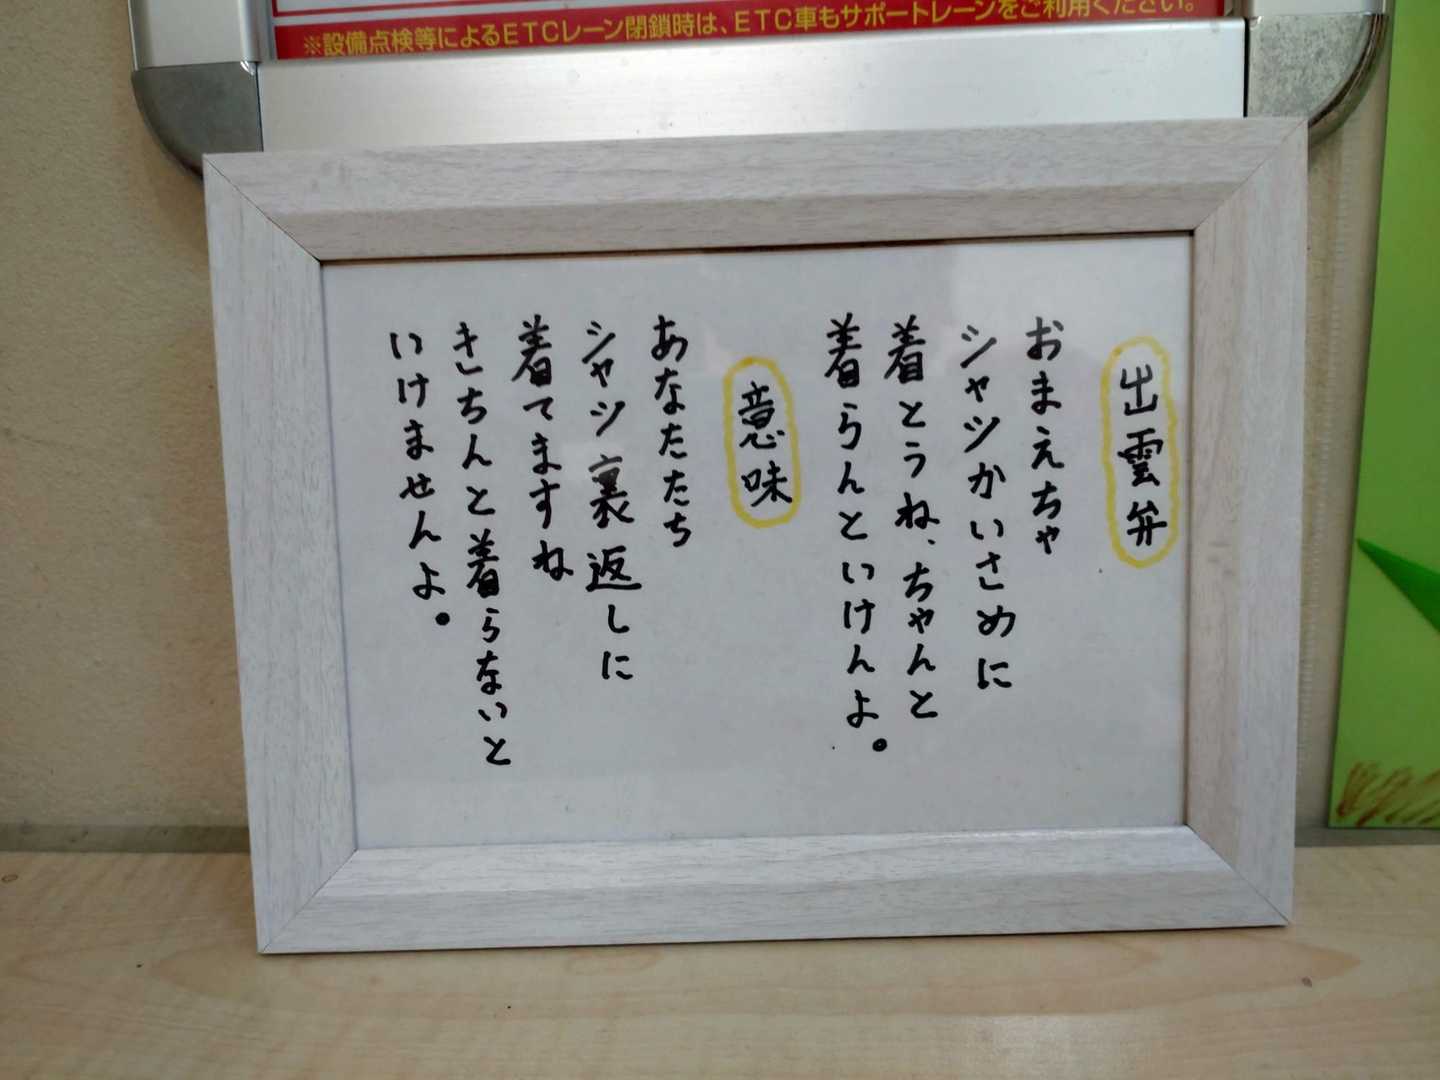 ※設備点検等によるETCレーン閉鎖時は、ETC車もサポートレーンをご利用ください。
出雲弁
おまえちゃ
シャツかいさめに
着とうね、ちゃんと
着らんといけんよ。
意味
あなたたち
シャツ裏返しに
着てますね
きちんと着らないと
いけませんよ。